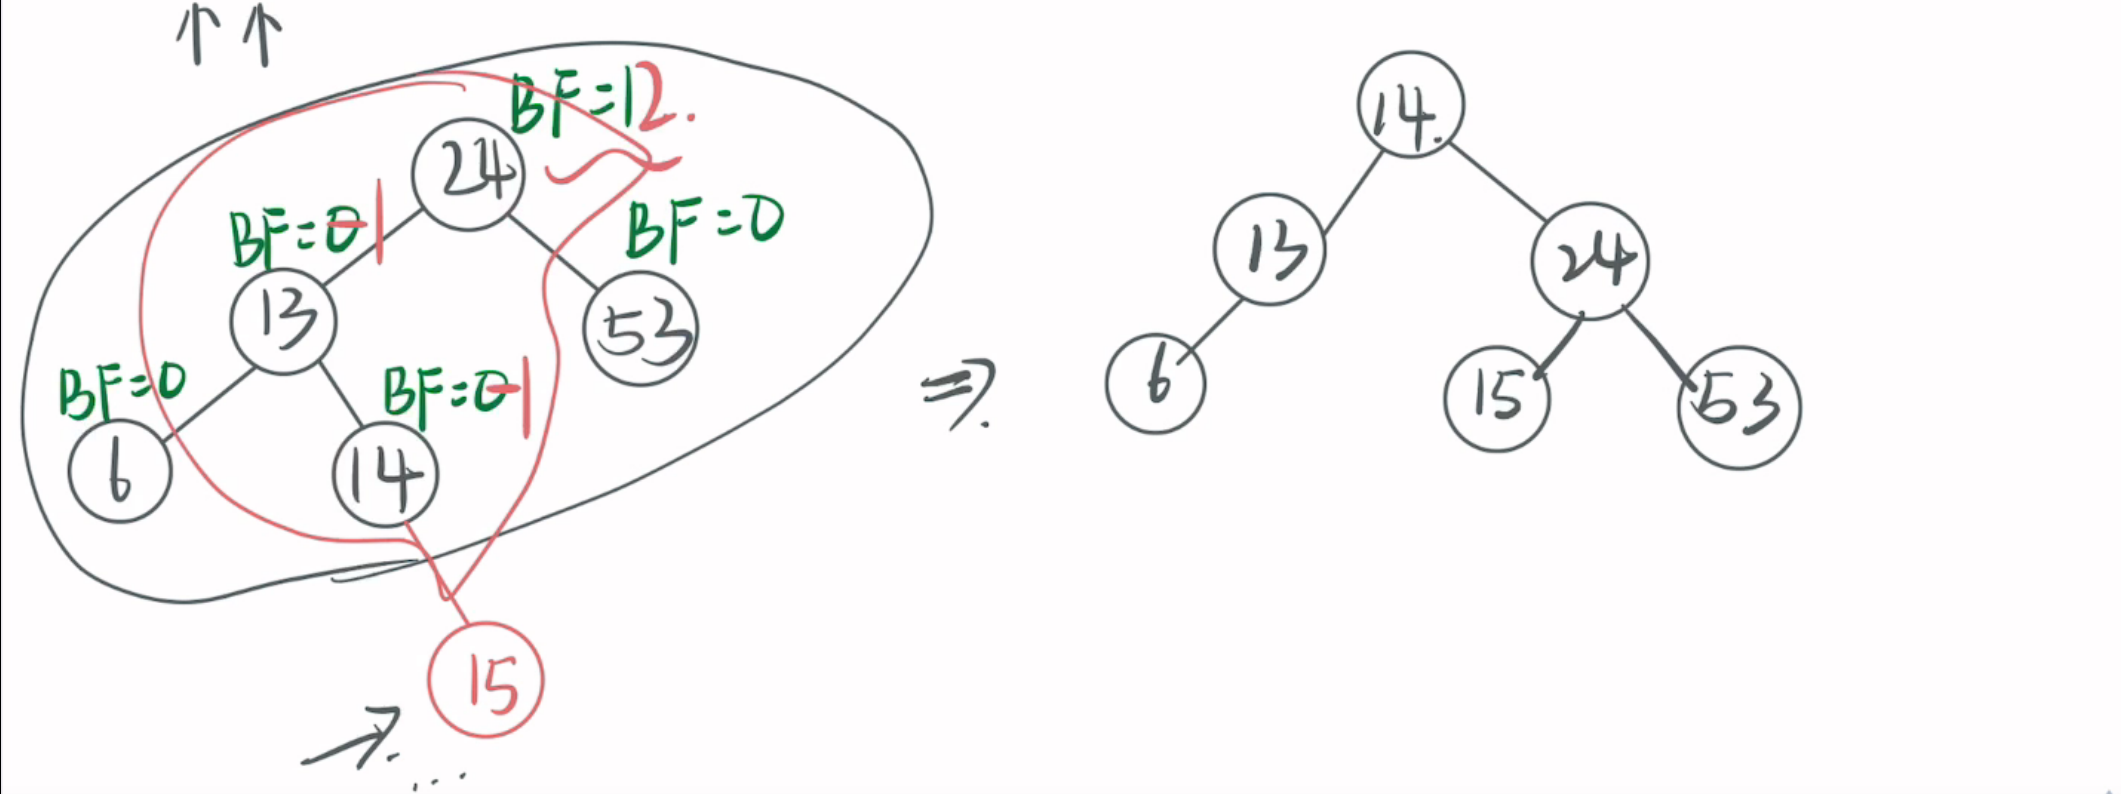 ↑ ↑
BF=1 2.
24
BF=0 -1
BF=0
13
53
BF=0
BF=0 -1
6
14
15
→ ...
⇒.
14.
13
24
6
15
53